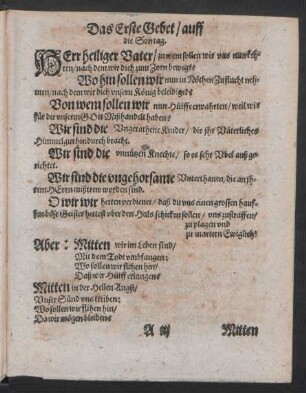 Das Erste Gebet / auff
die Sontag.
HErr heiliger Vater / zu wem sollen wir vns nun keh-
ren / nach dem wir dich zum Zorn bewegt?
Wo hin sollen wir nun in Nöthen Zuflucht neh-
men / nach dem wir dich vnsern König beleidiget?
Von wem sollen wir nun Hülff erwahrten / weil wir
für dir vnserm GOtt Mißhandelt haben?
Wir sind die Vngerathene Kinder / die jhr Väterliches
hindurch bracht.
Wir sind die vnnützen Knechte / so es sehr Vbel auß ge-
richtet.
Wir sind die vngehorsame Vnterthanen / die an jh-
rem HErrn worden sind.
O wir wir hetten verdienet / daß du vns einen grossen hauf-
fen böse Geister hettest vber den Halß schicken sollen / vns zustraffen /
zu plagen vnd
zu martern Ewiglich?
Aber: Mitten wir im Leben sind /
Mit dem Todt vmbfangen:
Wo sollen wir fliehen hin /
Daß wir Hülff erlangen?
Mitten in der Hellen Angst /
Vnser Sünd vns treiben:
Wo sollen wir fliehen hin /
Da wir mögen bleiben?
A iij Mitten